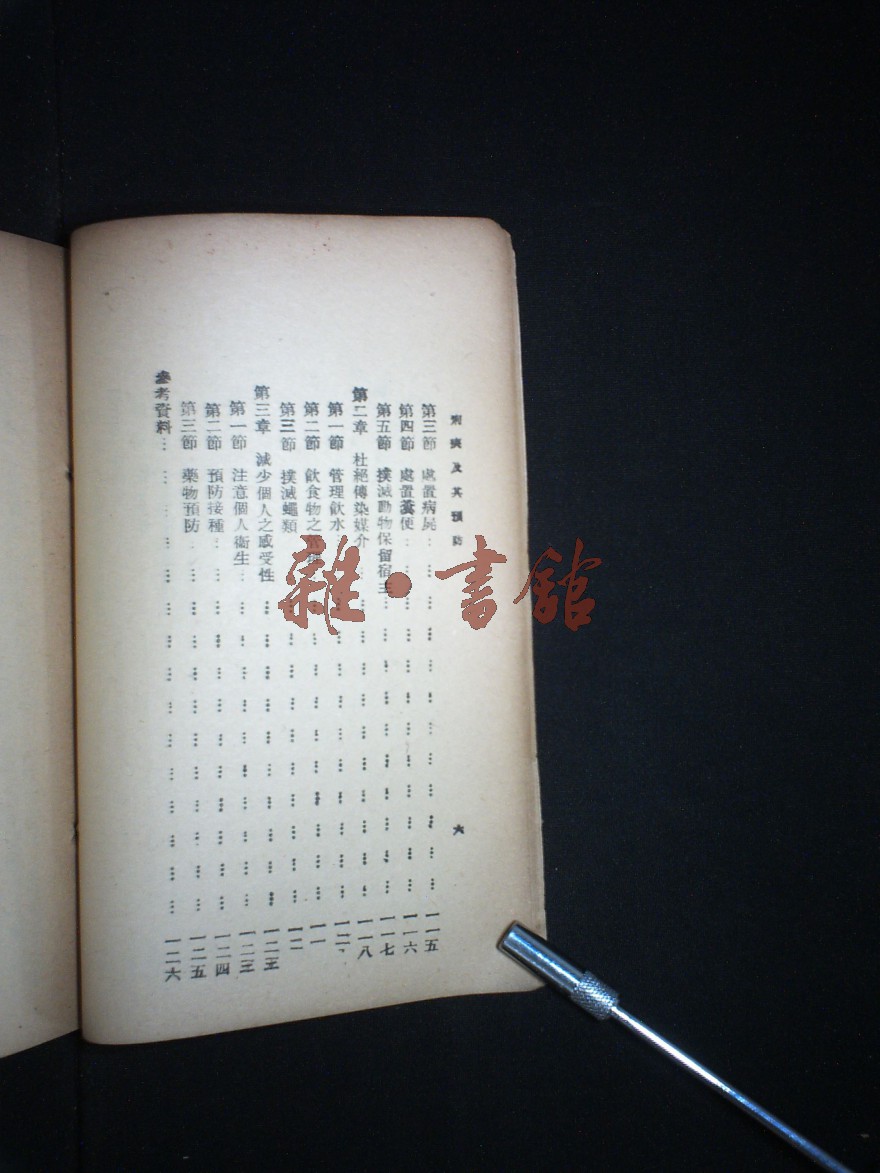 痢疾及其預防
六
第三節 處置病屍…一一五
第四節 處置糞便…一一六
第五節 撲滅動物保留宿主…一一七
第二章 杜絕傳染媒介…一一八
第一節 管理飲水…
第二節 飲食物之管理…
第三節 撲滅蠅類…
第三章 減少個人之感受性…一二三
第一節 注意個人衞生…一二三
第二節 預防接種…一二四
第三節 藥物預防…一二五
參考資料…一二六
雜·書館